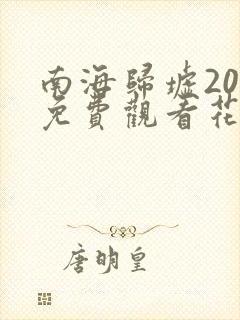 南海歸墟20
免費觀看花
唐明皇